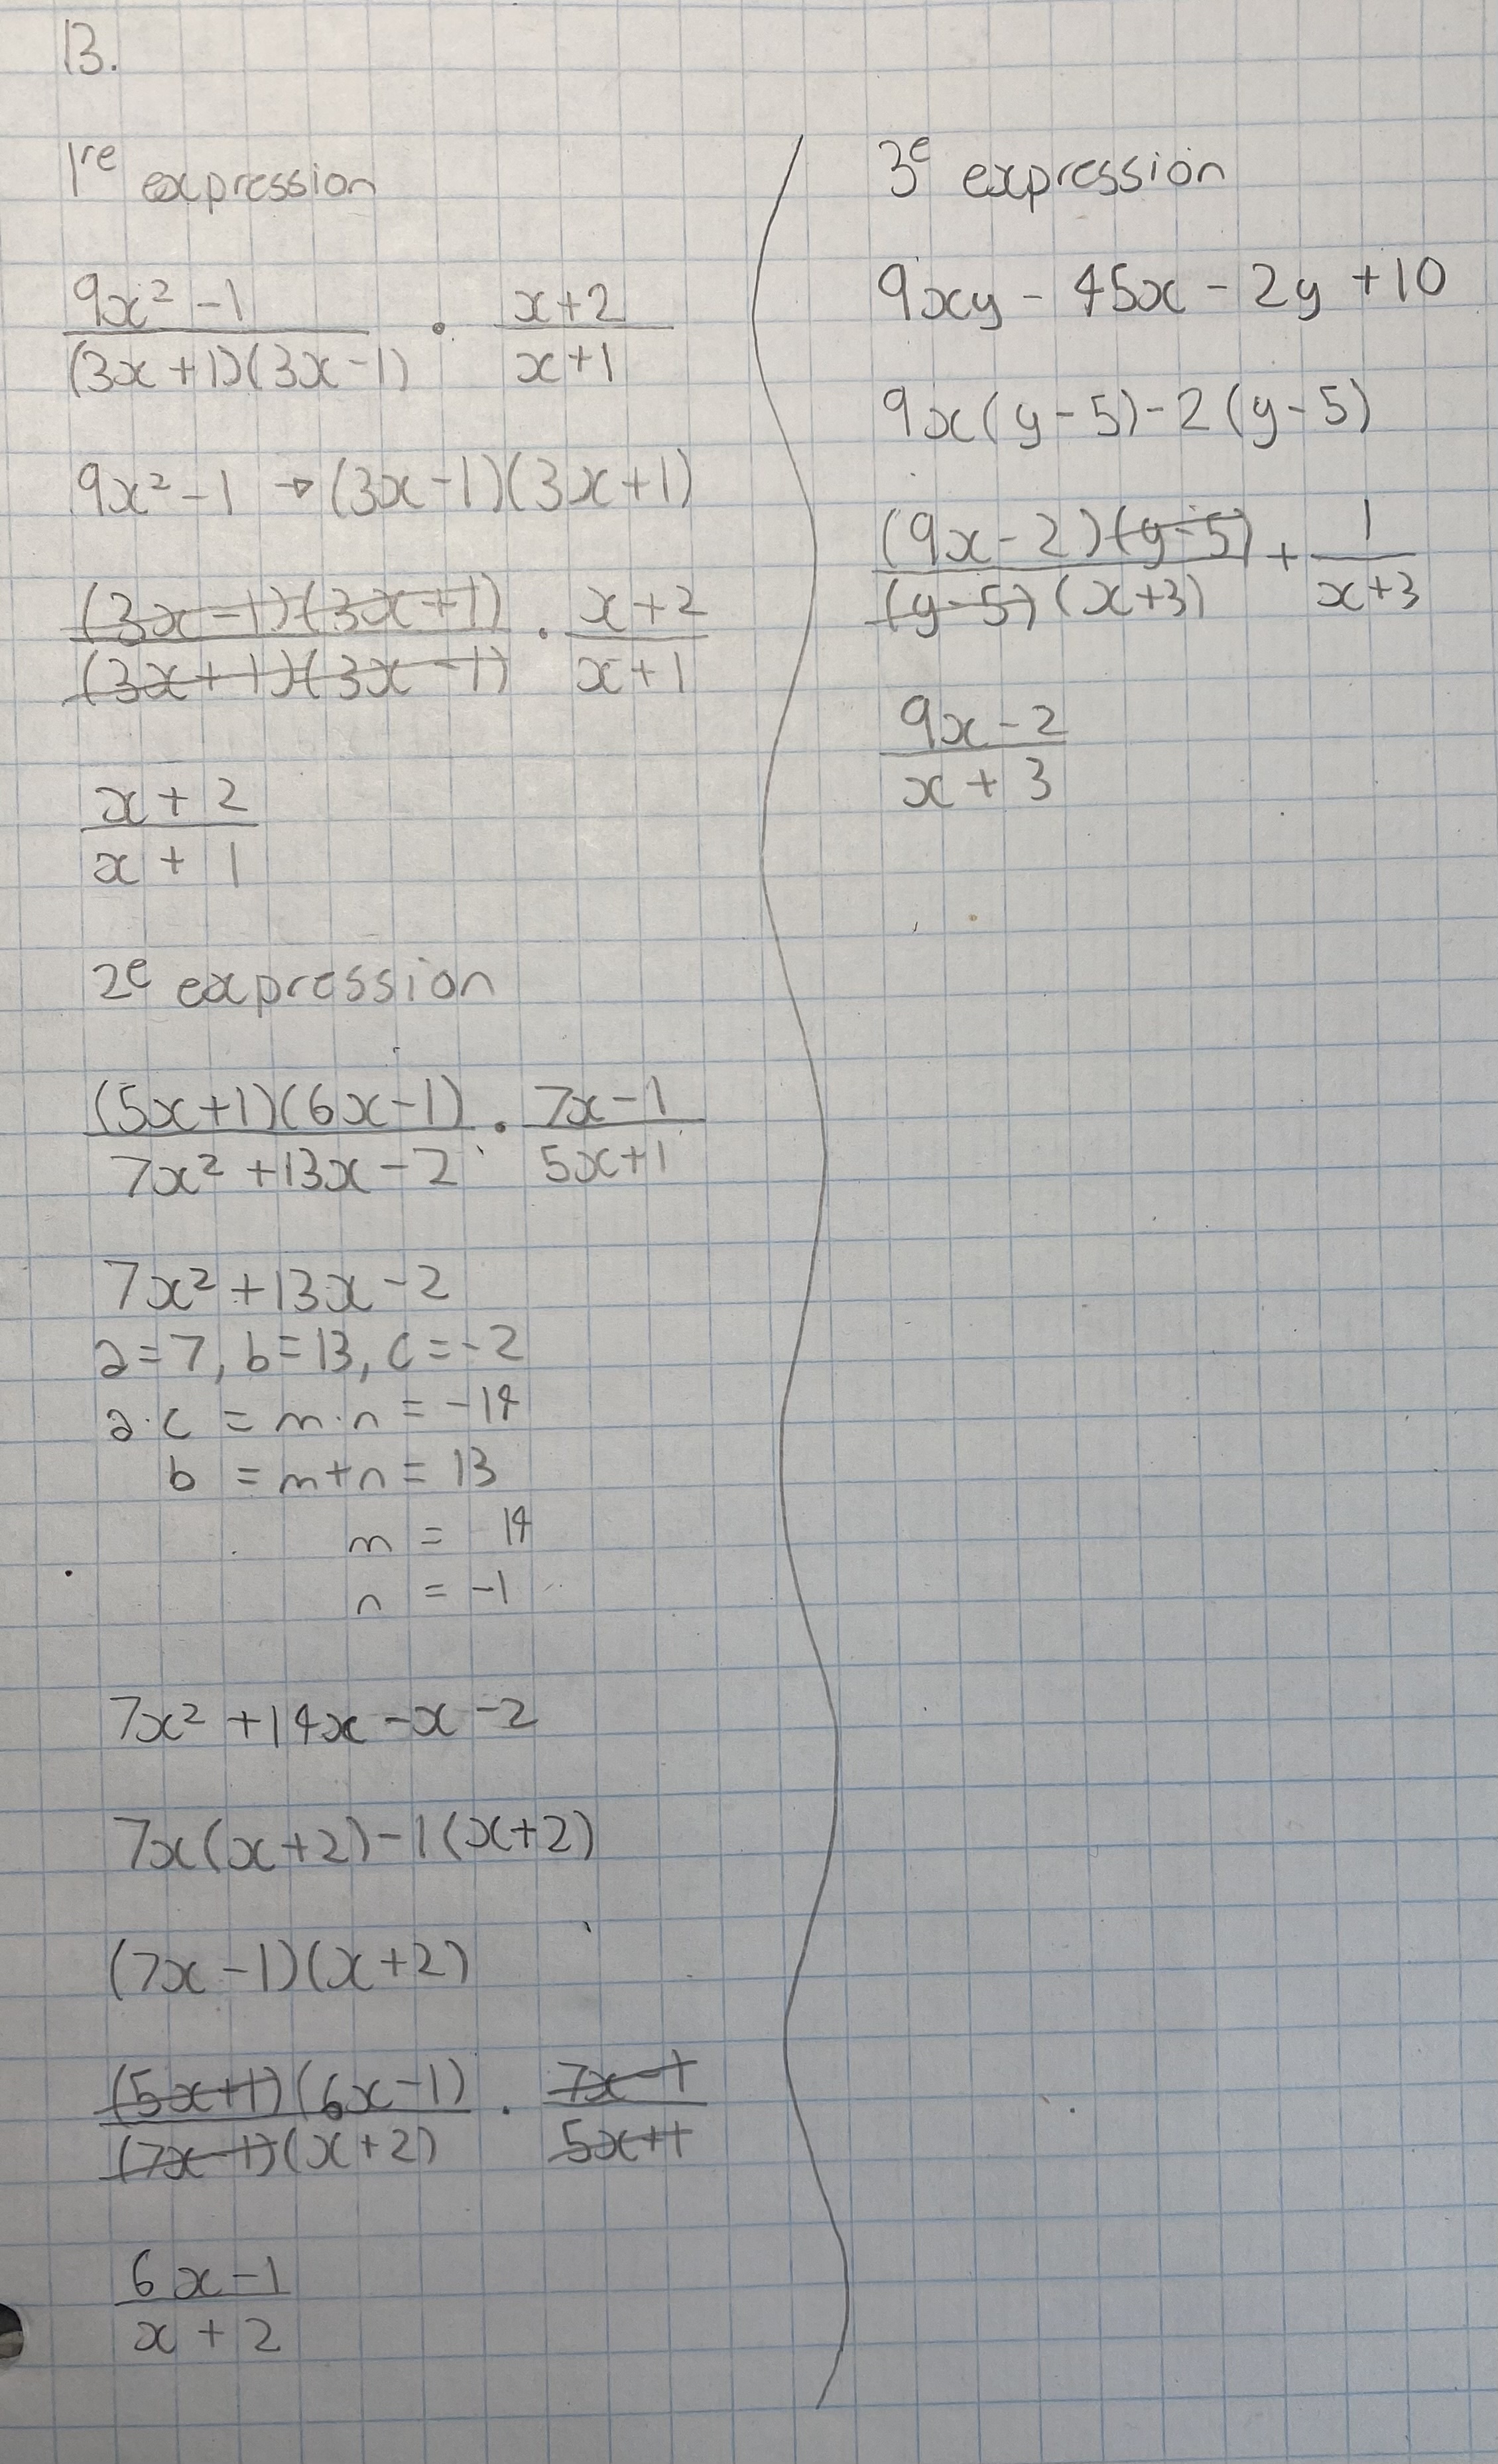 13.
1re expression
9x² - 1 / (3x + 1)(3x - 1) · x + 2 / x + 1
9x² - 1 → (3x - 1)(3x + 1)
(3x - 1)(3x + 1) / (3x + 1)(3x - 1) · x + 2 / x + 1
x + 2 / x + 1
2e expression
(5x + 1)(6x - 1) / 7x² + 13x - 2 · 7x - 1 / 5x + 1
7x² + 13x - 2
a = 7, b = 13, c = -2
a · c = m · n = -14
b = m + n = 13
m = 14
n = -1
7x² + 14x - x - 2
7x(x + 2) - 1(x + 2)
(7x - 1)(x + 2)
(5x + 1)(6x - 1) / (7x - 1)(x + 2) · 7x - 1 / 5x + 1
6x - 1 / x + 2
3e expression
9xy - 45x - 2y + 10
9x(y - 5) - 2(y - 5)
(9x - 2)(y - 5) / (y - 5)(x + 3) + 1 / x + 3
9x - 2 / x + 3